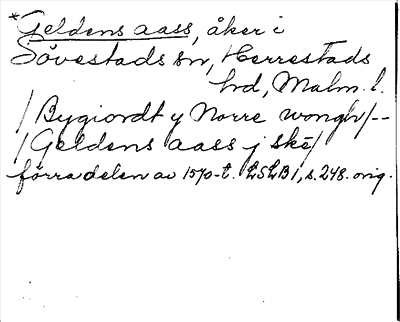 *Geldens aass, åker i
Sövestads sn, Herrestads
hd, Malm. l.
/Bygiordt y Norre wongh/--
/Geldens aass j skē/
förra delen av 1570-t. LSLB1, s. 248. orig.